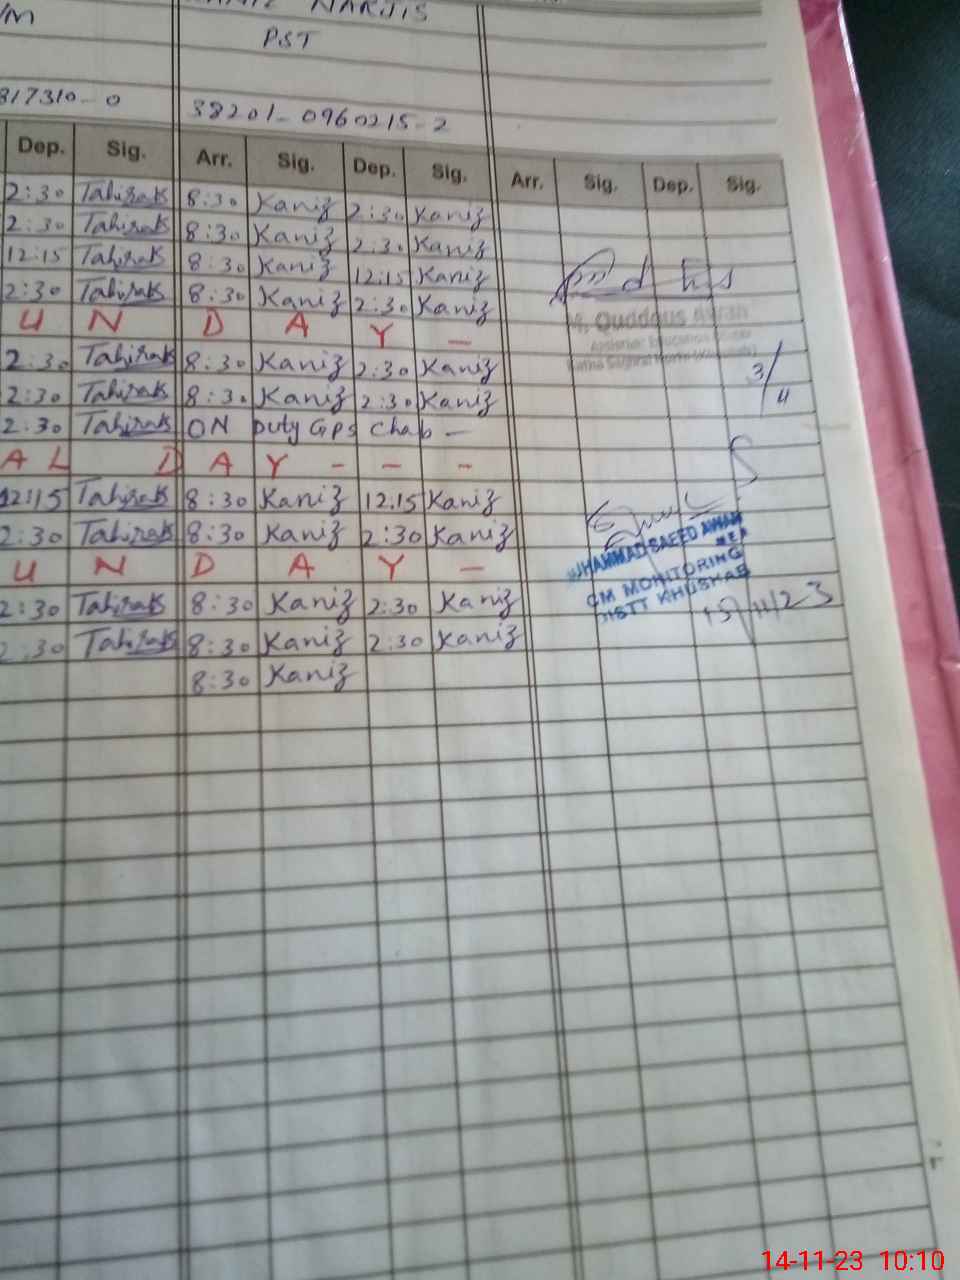 /M NARJIS
PST
817310-0 38201-0960215-2
Dep. Sig. Arr. Sig. Dep. Sig. Arr. Sig. Dep. Sig.
2:30 Tahirah 8:30 Kaniz 2:30 Kaniz
2:30 Tahirah 8:30 Kaniz 2:30 Kaniz
12:15 Tahirah 8:30 Kaniz 12:15 Kaniz
2:30 Tahirah 8:30 Kaniz 2:30 Kaniz
U N D A Y —
M. Quddous Awan
2:30 Tahirah 8:30 Kaniz 2:30 Kaniz
3/11
2:30 Tahirah 8:30 Kaniz 2:30 Kaniz
2:30 Tahirah ON Duty GPS Chab —
A L D A Y - - -
12:15 Tahirah 8:30 Kaniz 12.15 Kaniz
2:30 Tahirah 8:30 Kaniz 2:30 Kaniz
U N D A Y —
MUHAMMAD SAEED AWAN
MEA
CM MONITORING
DISTT KHUSHAB
15/11/23
2:30 Tahirah 8:30 Kaniz 2:30 Kaniz
2:30 Tahirah 8:30 Kaniz 2:30 Kaniz
8:30 Kaniz
14-11-23 10:10